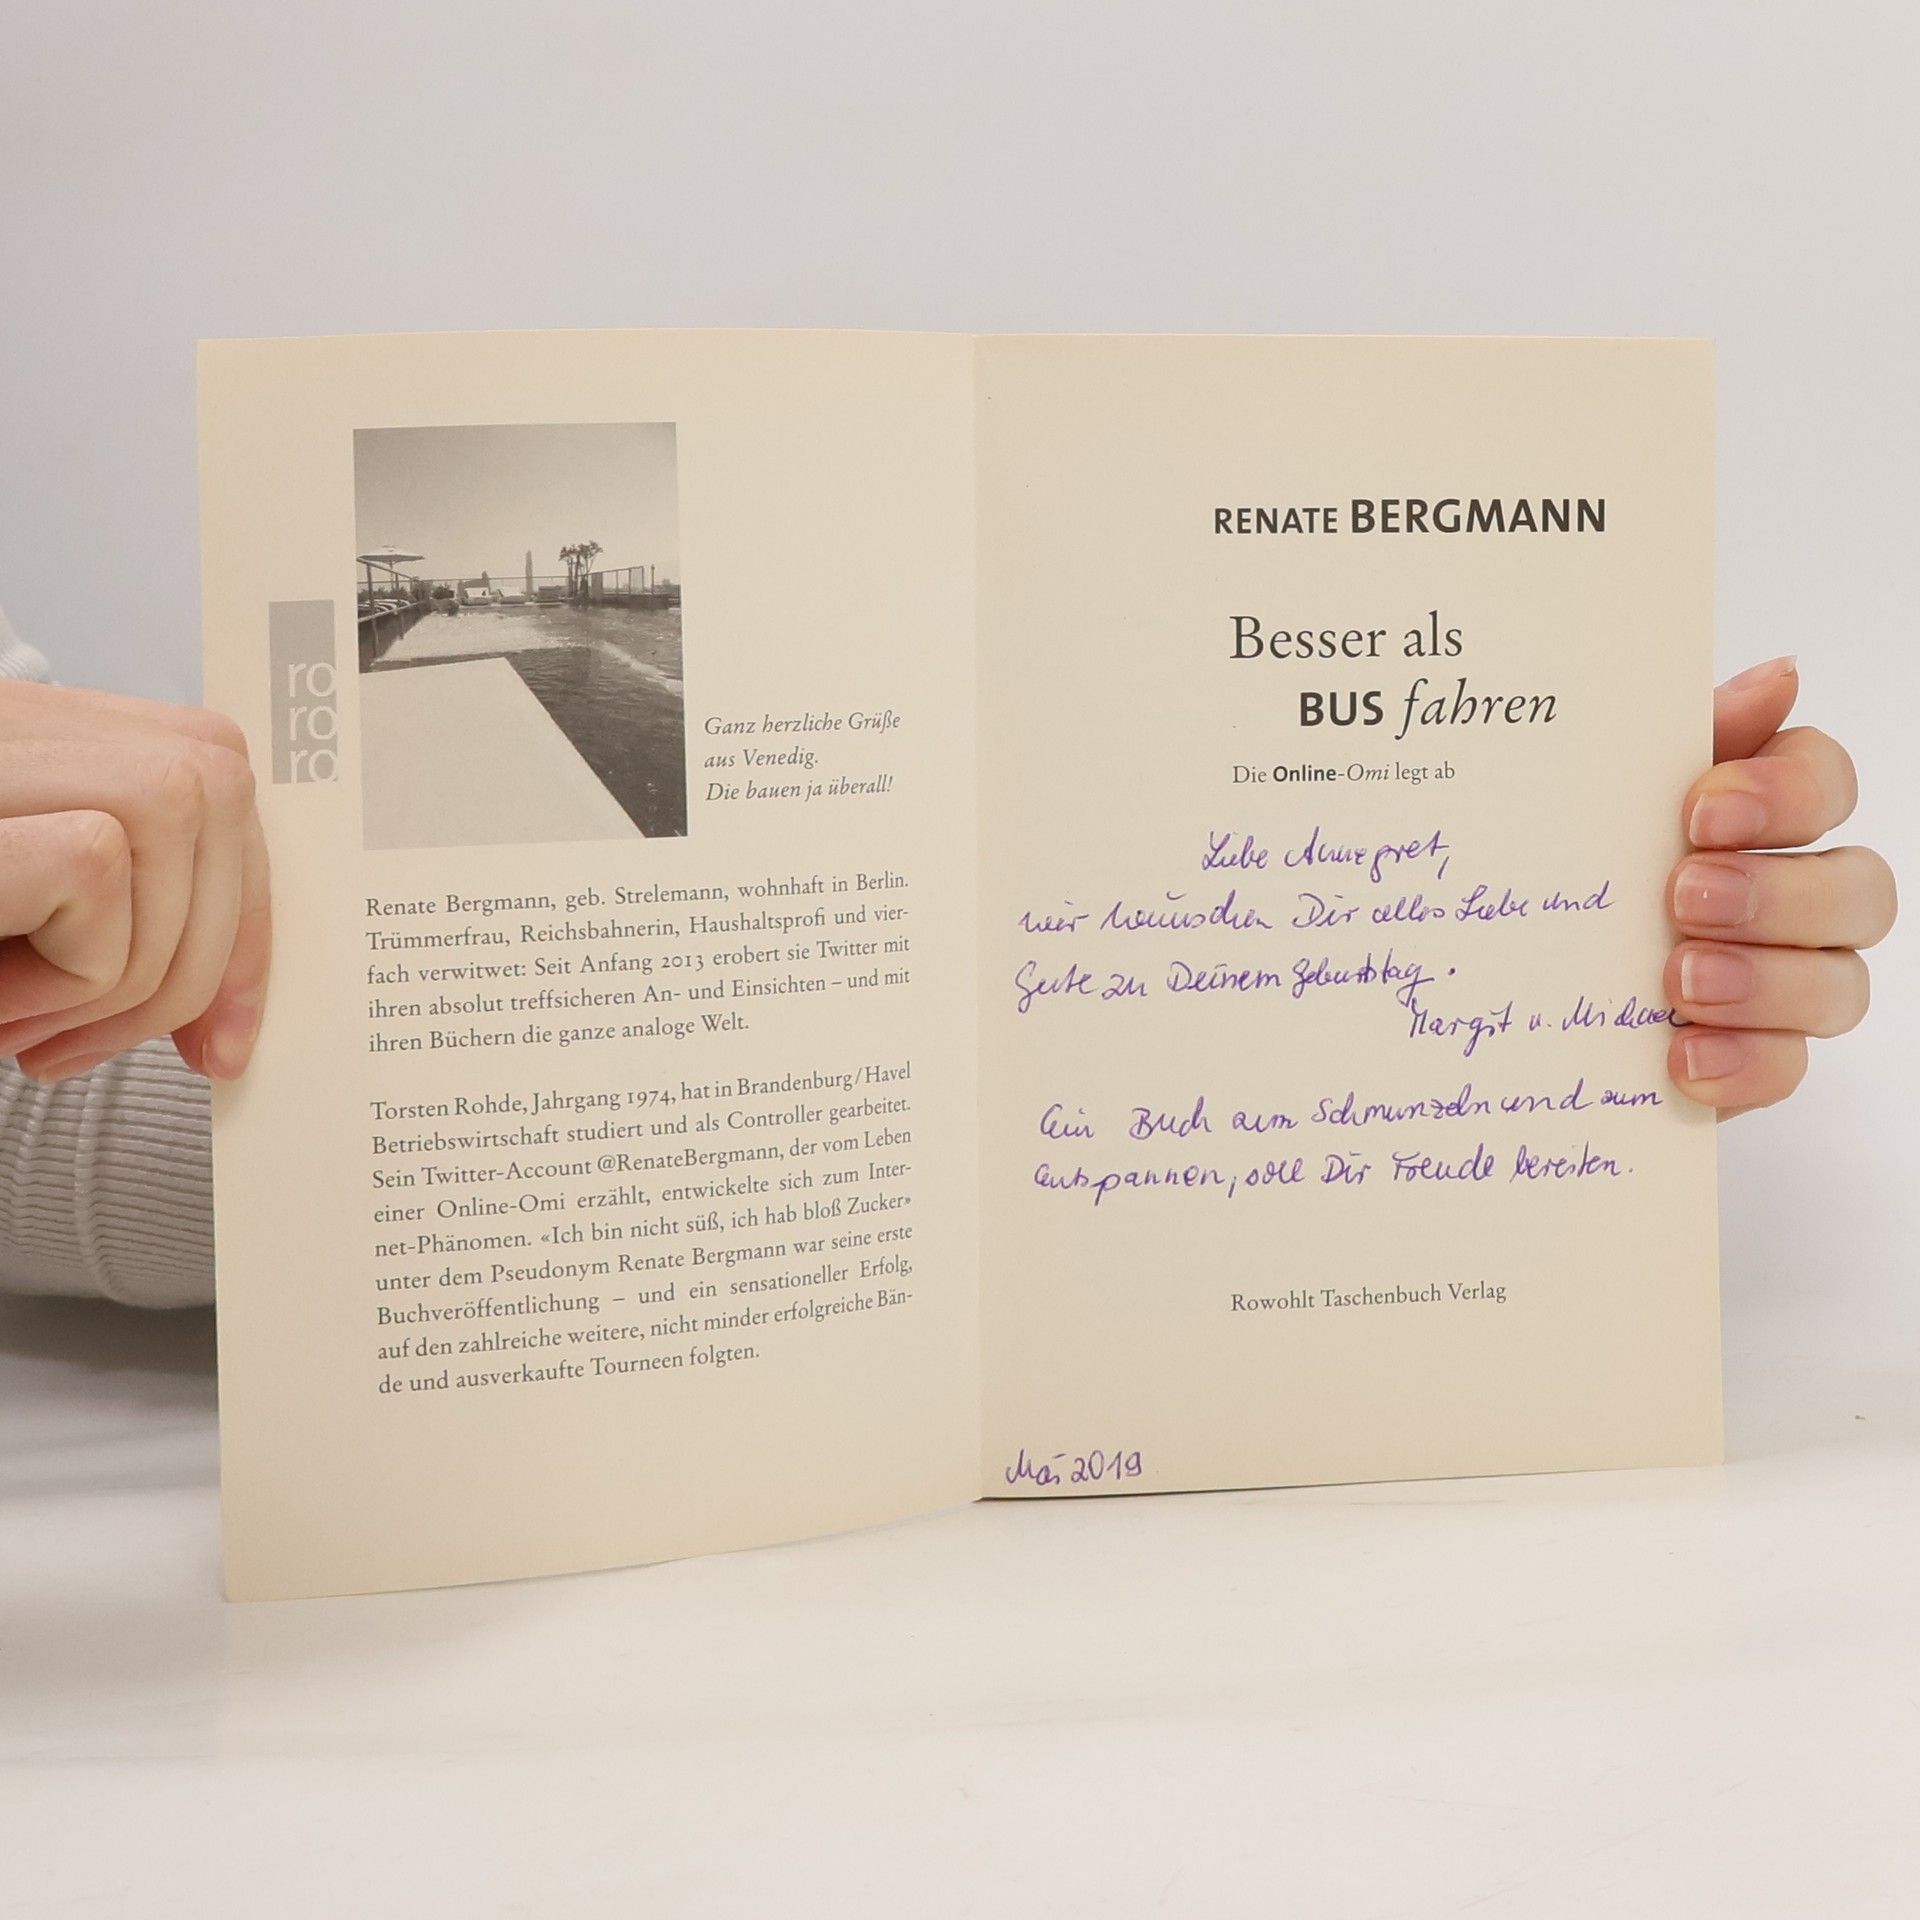 ro
ro
ro
Ganz herzliche Grüße
aus Venedig.
Die bauen ja überall!
Renate Bergmann, geb. Strelemann, wohnhaft in Berlin.
Trümmerfrau, Reichsbahnerin, Haushaltsprofi und vier-
fach verwitwet: Seit Anfang 2013 erobert sie Twitter mit
ihren absolut treffsicheren An- und Einsichten – und mit
ihren Büchern die ganze analoge Welt.
Torsten Rohde, Jahrgang 1974, hat in Brandenburg/Havel
Betriebswirtschaft studiert und als Controller gearbeitet.
Sein Twitter-Account @RenateBergmann, der vom Leben
einer Online-Omi erzählt, entwickelte sich zum Inter-
net-Phänomen. «Ich bin nicht süß, ich hab bloß Zucker»
unter dem Pseudonym Renate Bergmann war seine erste
Buchveröffentlichung – und ein sensationeller Erfolg,
auf den zahlreiche weitere, nicht minder erfolgreiche Bän-
de und ausverkaufte Tourneen folgten.
RENATE BERGMANN
Besser als
BUS fahren
Die Online-Omi legt ab
Liebe Annegret,
wir wünschen Dir alles Liebe und
Gute zu Deinem Geburtstag.
Margit u. Michael
Ein Buch zum Schmunzeln und zum
entspannen, soll Dir Freude bereiten.
Rowohlt Taschenbuch Verlag
Mai 2019